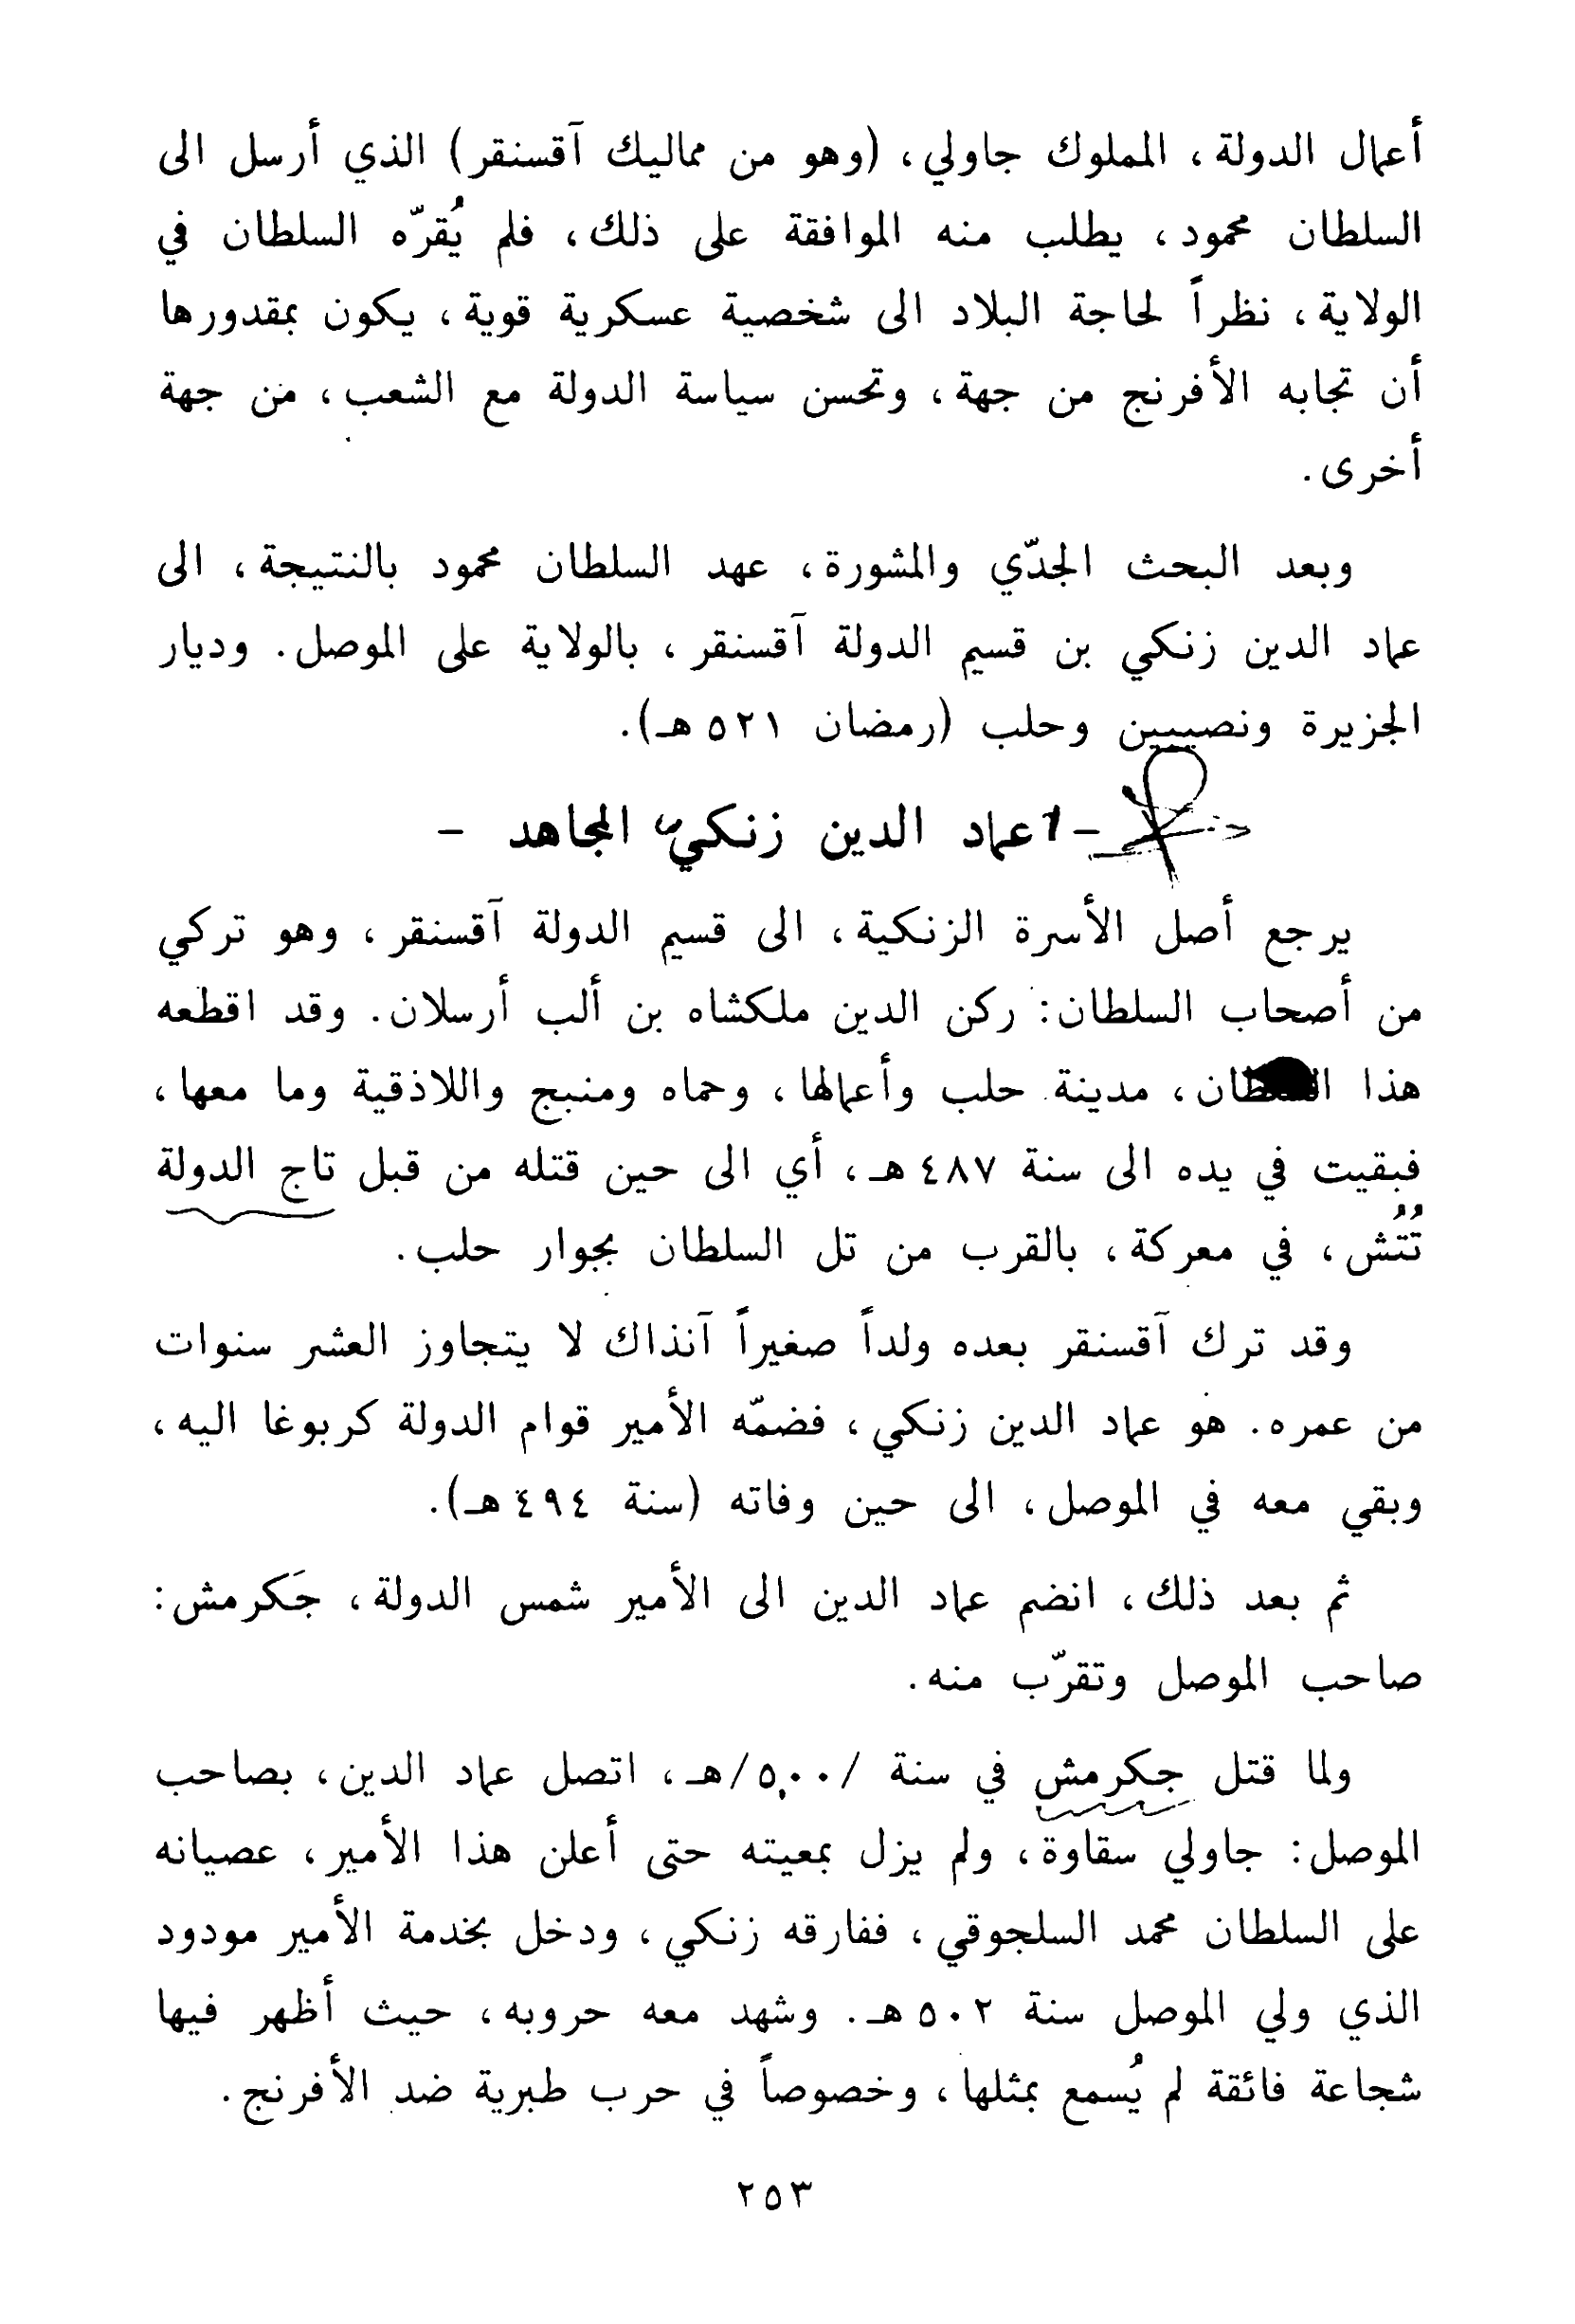 أعمال الدولة، المملوك جاولي، (وهو من مماليك آقسنقر) الذي أرسل الى
السلطان محمود، يطلب منه الموافقة على ذلك، فلم يُقرّه السلطان في
الولاية، نظراً لحاجة البلاد الى شخصية عسكرية قوية، يكون بمقدورها
أن تجابه الأفرنج من جهة، وتحسن سياسة الدولة مع الشعب، من جهة
أخرى.
وبعد البحث الجدّي والمشورة، عهد السلطان محمود بالنتيجة، الى
عماد الدين زنكي بن قسيم الدولة آقسنقر، بالولاية على الموصل. وديار
الجزيرة ونصيبين وحلب (رمضان ٥٢١ هـ).
- عماد الدين زنكي المجاهد -
يرجع أصل الأسرة الزنكية، الى قسيم الدولة آقسنقر، وهو تركي
من أصحاب السلطان: ركن الدين ملكشاه بن ألب أرسلان. وقد اقطعه
هذا السلطان، مدينة حلب وأعمالها، وحماه ومنبج واللاذقية وما معها،
فبقيت في يده الى سنة ٤٨٧ هـ، أي الى حين قتله من قبل تاج الدولة
تُتُش، في معركة، بالقرب من تل السلطان بجوار حلب.
وقد ترك آقسنقر بعده ولداً صغيراً آنذاك لا يتجاوز العشر سنوات
من عمره. هو عماد الدين زنكي، فضمّه الأمير قوام الدولة كربوغا اليه،
وبقي معه في الموصل، الى حين وفاته (سنة ٤٩٤ هـ).
ثم بعد ذلك، انضم عماد الدين الى الأمير شمس الدولة، جَكرمش:
صاحب الموصل وتقرّب منه.
ولما قتل جكرمش في سنة /٥٠٠/هـ، اتصل عماد الدين، بصاحب
الموصل: جاولي سقاوة، ولم يزل بمعيته حتى أعلن هذا الأمير، عصيانه
على السلطان محمد السلجوقي، ففارقه زنكي، ودخل بخدمة الأمير مودود
الذي ولي الموصل سنة ٥٠٢ هـ. وشهد معه حروبه، حيث أظهر فيها
شجاعة فائقة لم يُسمع بمثلها، وخصوصاً في حرب طبرية ضد الأفرنج.
٢٥٣